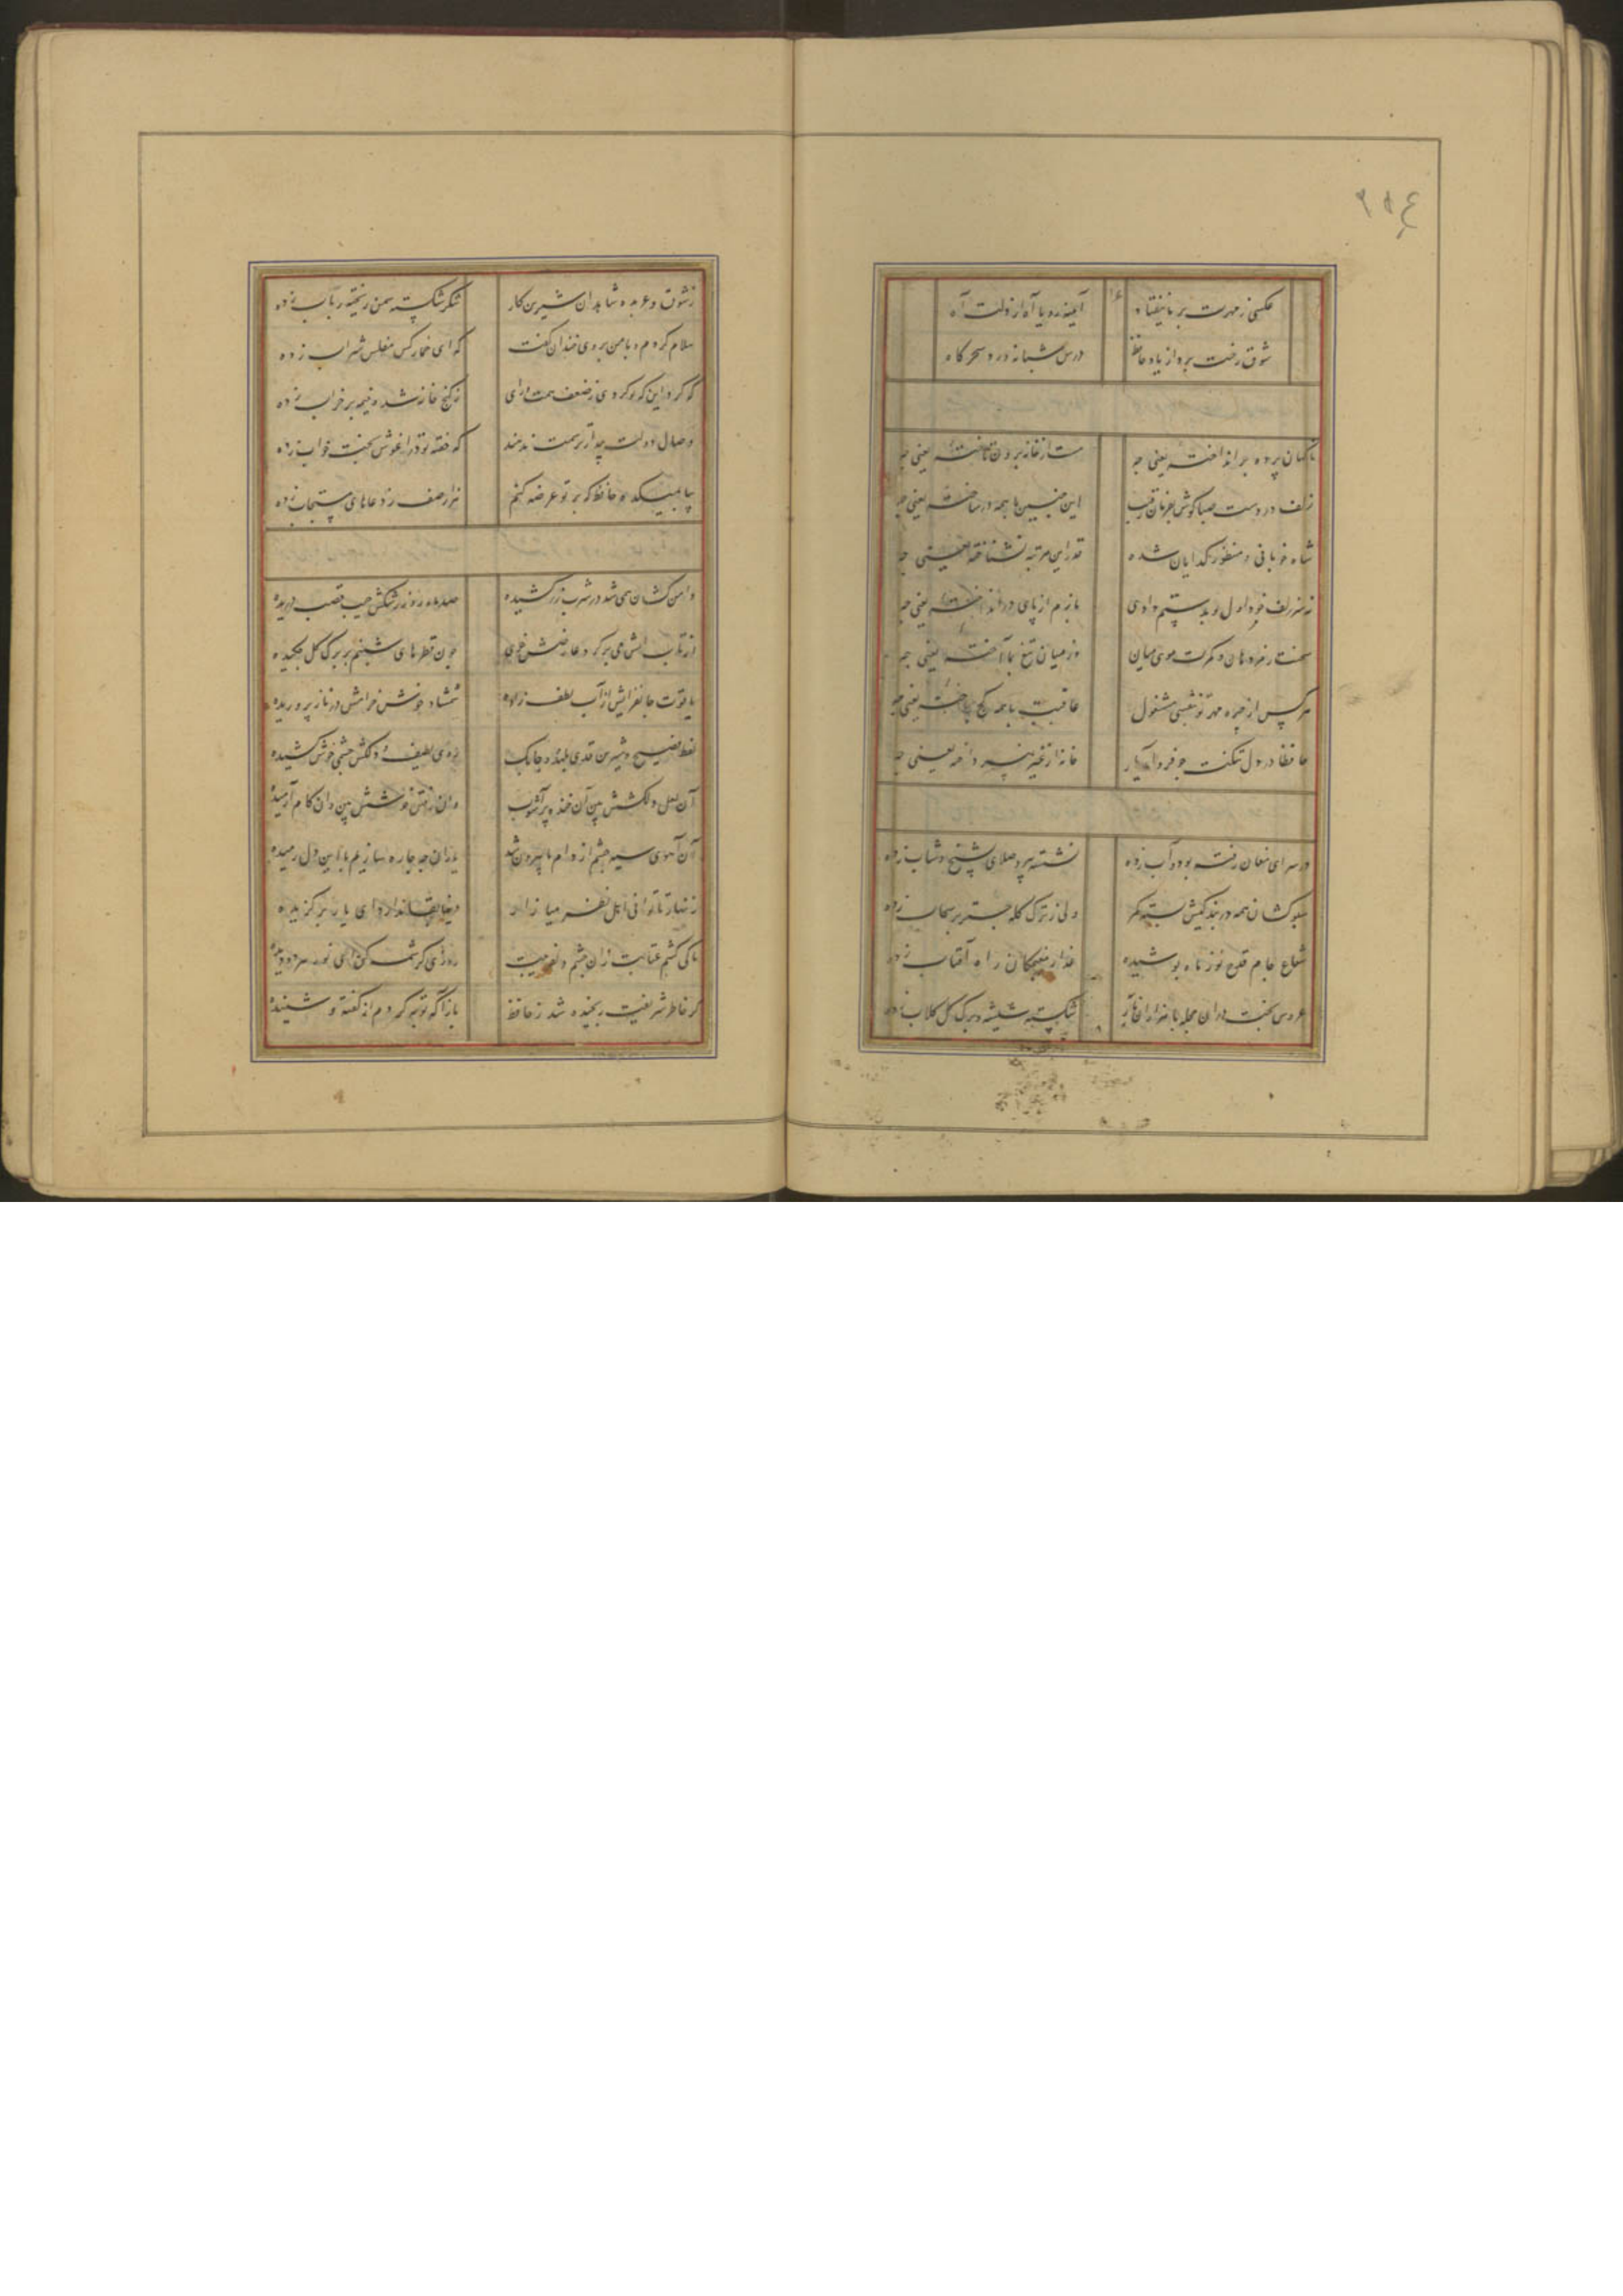 عکسی ز مهرت بر ما نیفتاد آیینه رویا آه از دلت آه
شوق رخت برد از یاد حافظ درس شبانه ورد سحرگاه
ناگهان پرده برانداخته یعنی چه مست از خانه برون تاخته یعنی چه
زلف در دست صبا گوش بفرمان رقیب این چنین با همه در ساخته یعنی چه
شاه خوبانی و منظور گدایان شده قدر این مرتبه نشناخته یعنی چه
نه سر زلف خود اول تو بدستم دادی بازم از پای در انداخته یعنی چه
سخنت رمز دهان و کمرت موی میان وز میان تیغ بما آخته یعنی چه
هر کس از مهره مهر تو نقشی مشغول عاقبت با همه کج باخته یعنی چه
حافظا در دل تنگت چو فرود آید یار خانه از غیر نپرداخته یعنی چه
در سرای مغان رفته بود و آب زده نشسته پیر و صلای بشیخ و شاب زده
سبوکشان همه در بندگیش بسته کمر ولی ز ترک کله چتر بر سحاب زده
شعاع جام قدح نور ماه پوشیده عذار مغبچگان راه آفتاب زده
عروس بخت در آن حجله با هزاران ناز شکسته و بر برگ گل گلاب زده
ز شوق و عربده شاهدان شیرین کار شکر شکسته سمن ریخته رباب زده
سلام کردم و با من بروی خندان گفت که ای خمارکش مفلس شراب زده
که کرد این که تو کردی ز ضعف همت و رای ز گنج خانه شده خیمه بر خراب زده
وصال دولت بیدار ترسمت ندهند که خفته تو در آغوش بخت خواب زده
بیا بمیکده حافظ که بر تو عرضه کنم هزار صف ز دعاهای مستجاب زده
دامن کشان همی شد در شرب زر کشیده صد ماه رو ز رشکش جیب قصب دریده
از تاب آتش می بر گرد عارضش خوی چون قطرهای شبنم بر برگ گل چکیده
یاقوت جانفزایش از آب لطف زاده شمشاد خوش خرامش در ناز پروریده
لفظی فصیح و شیرین قدی بلند و چابک روی لطیف و دلکش چشمی خوش کشیده
آن لعل دلکشش بین آن خنده پر آشوب وان رفتن خوشش بین وان گام آرمیده
آن آهوی سیه چشم از دام ما برون شد یاران چه چاره سازیم با این دل رمیده
زنهار تا توانی اهل نظر میازار دنیا وفا ندارد ای یار برگزیده
تا کی کشم عتابت زان چشم دلفریبت روزی کرشمه کن ای نور هر دو دیده
گر خاطر شریفت رنجیده شد ز حافظ باز آ که توبه کردم از گفته و شنیده